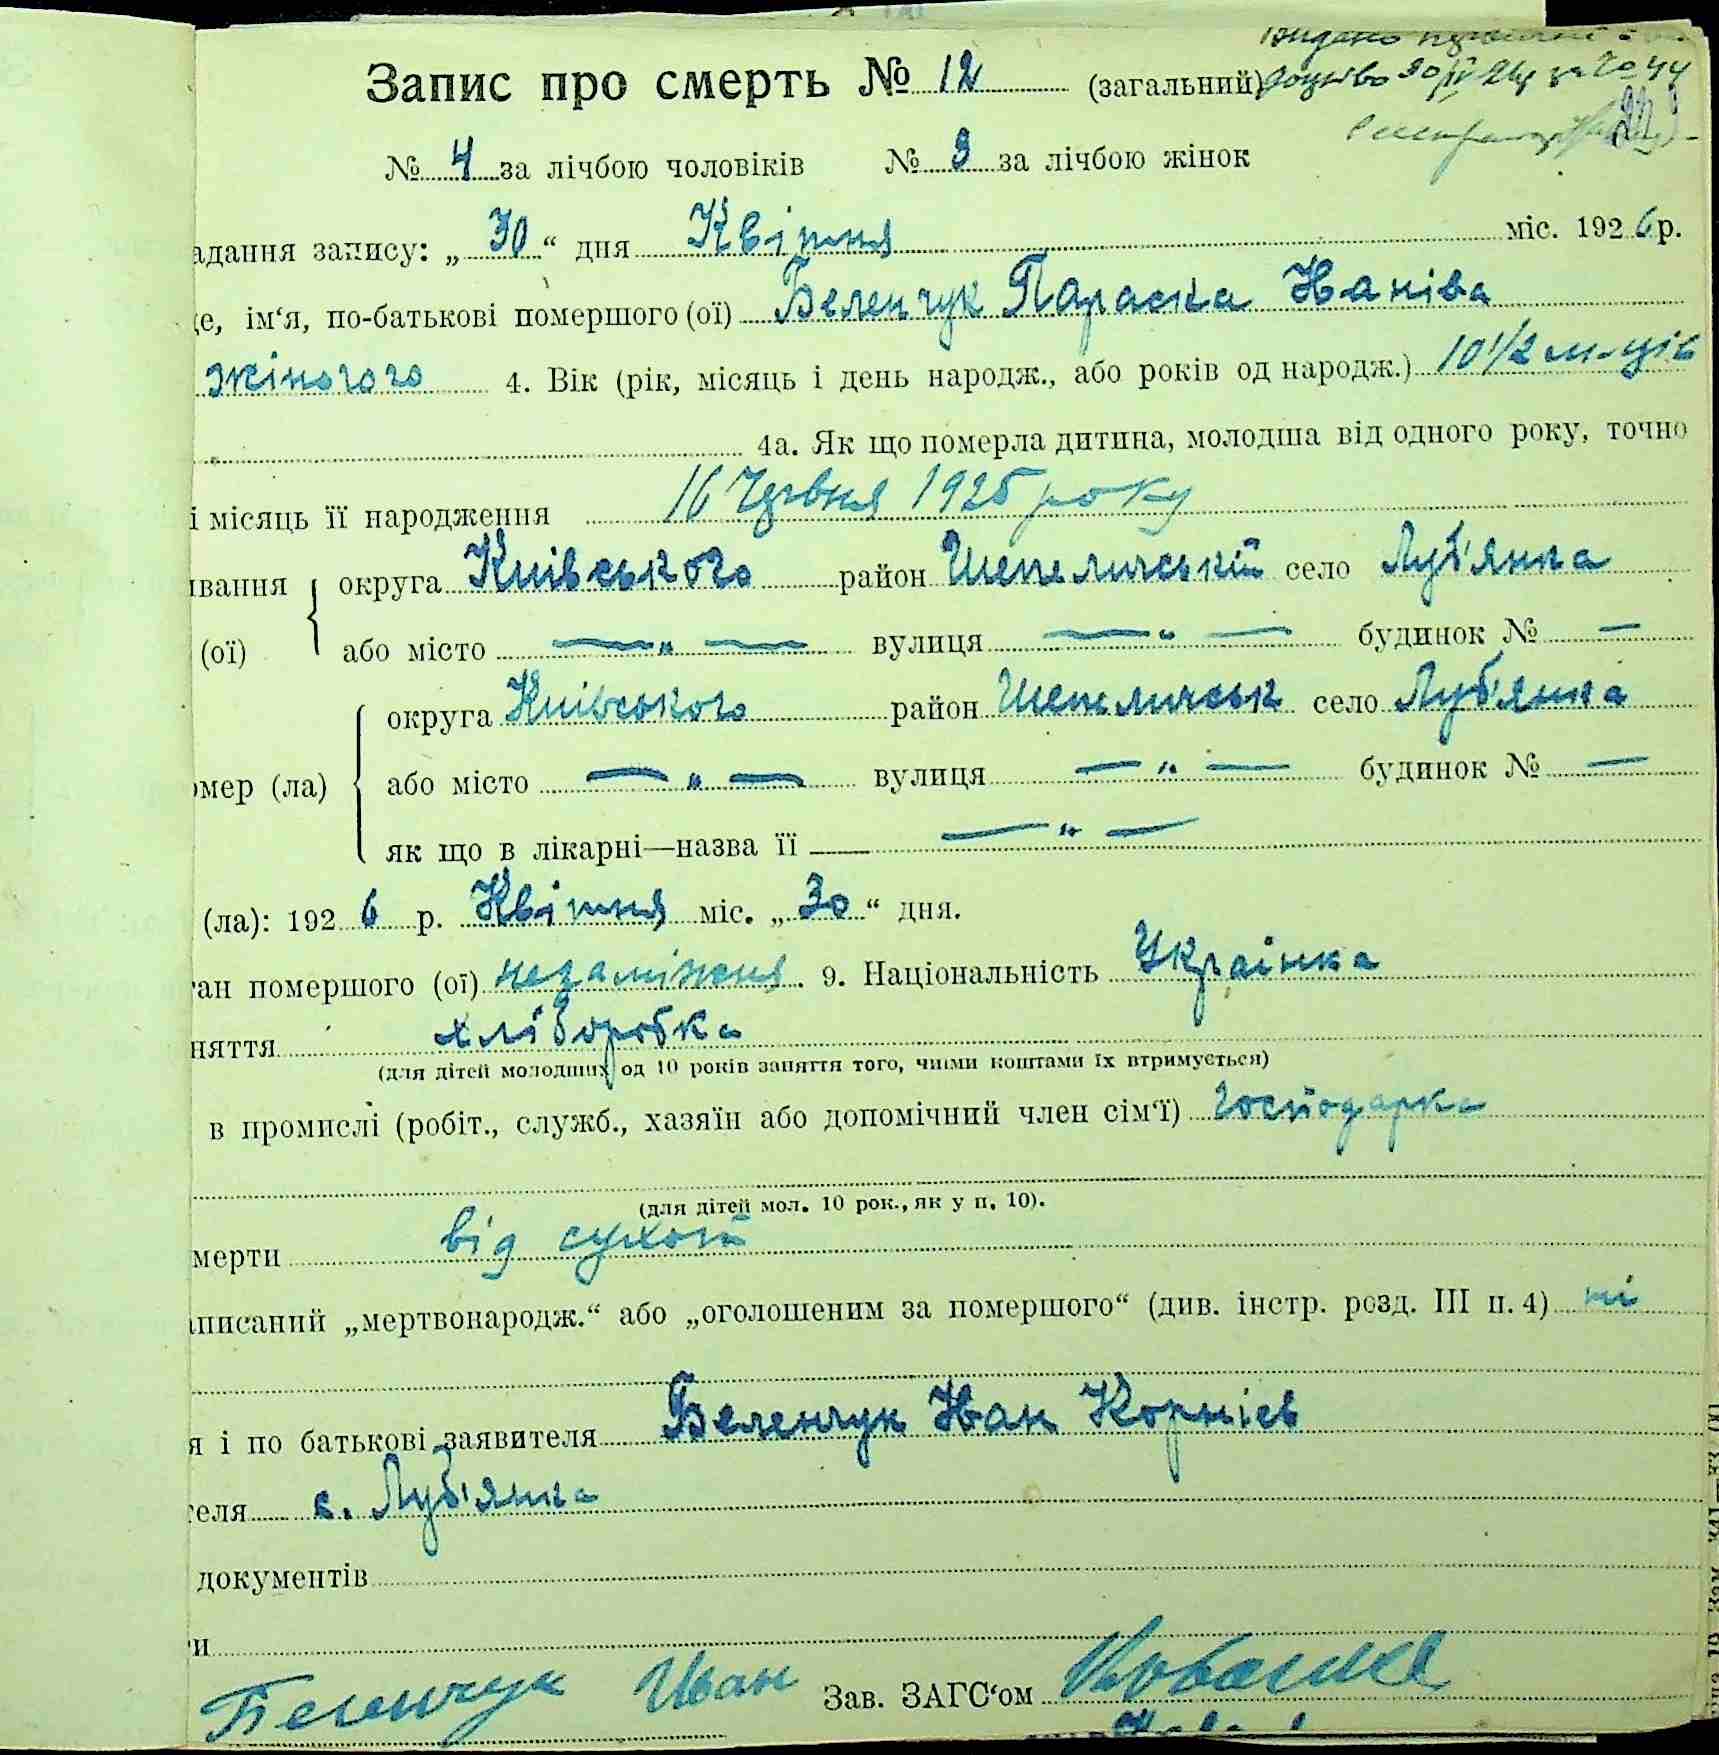 Видано
30/IV 26р за № 44
Запис про смерть № 12 (загальний)
№ 4 за лічбою чоловіків № 3 за лічбою жінок
адання запису: „30“ дня Квітня міс. 1926 р.
це, ім‘я, по-батькові помершого (ої) Беленчук Параска Иванівна
жіночого 4. Вік (рік, місяць і день народж., або років од народж.) 10 1/2 м-ців
4а. Як що померла дитина, молодша від одного року, точно
і місяць її народження 16 Червня 1925 року
ивання округа Київського район Шепелицській село Луб'янка
(ої) або місто — „ — вулиця — „ — будинок № —
округа Київського район Шепеличськ село Луб'янка
омер (ла) або місто — „ — вулиця — „ — будинок № —
як що в лікарні—назва її — „ —
(ла): 1926 р. Квітня міс. „30“ дня.
ан помершого (ої) незаміжня. 9. Національність Украінка
няття хліборобка
(для дітей молодших од 10 років заняття того, чиїми коштами їх втримується)
в промислі (робіт., служб., хазяїн або допомічний член сім‘ї) Господарка
(для дітей мол. 10 рок., як у п. 10).
мерти від сухот
аписаний „мертвонародж.“ або „оголошеним за помершого“ (див. інстр. розд. III п. 4) ні
я і по батькові заявителя Беленчук Иван Корніев
теля с. Луб'янка
документів
и
Беленчук Иван Зав. ЗАГС‘ом